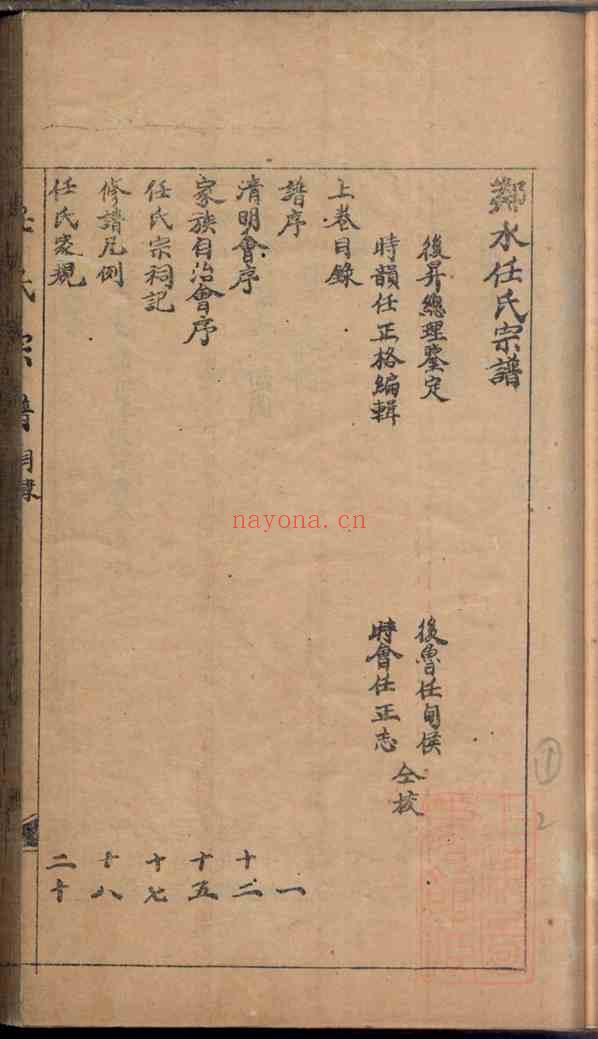 鄰水任氏宗譜
後昇總理鑒定
後魯任甸侯
時韻任正格編輯
時會任正志
仝校
上卷目錄
譜序 一
清明會序 十二
家族自治會序 十五
任氏宗祠記 十七
修譜凡例 十八
任氏家規 二十
氏宗譜
nayona.cn
1
2